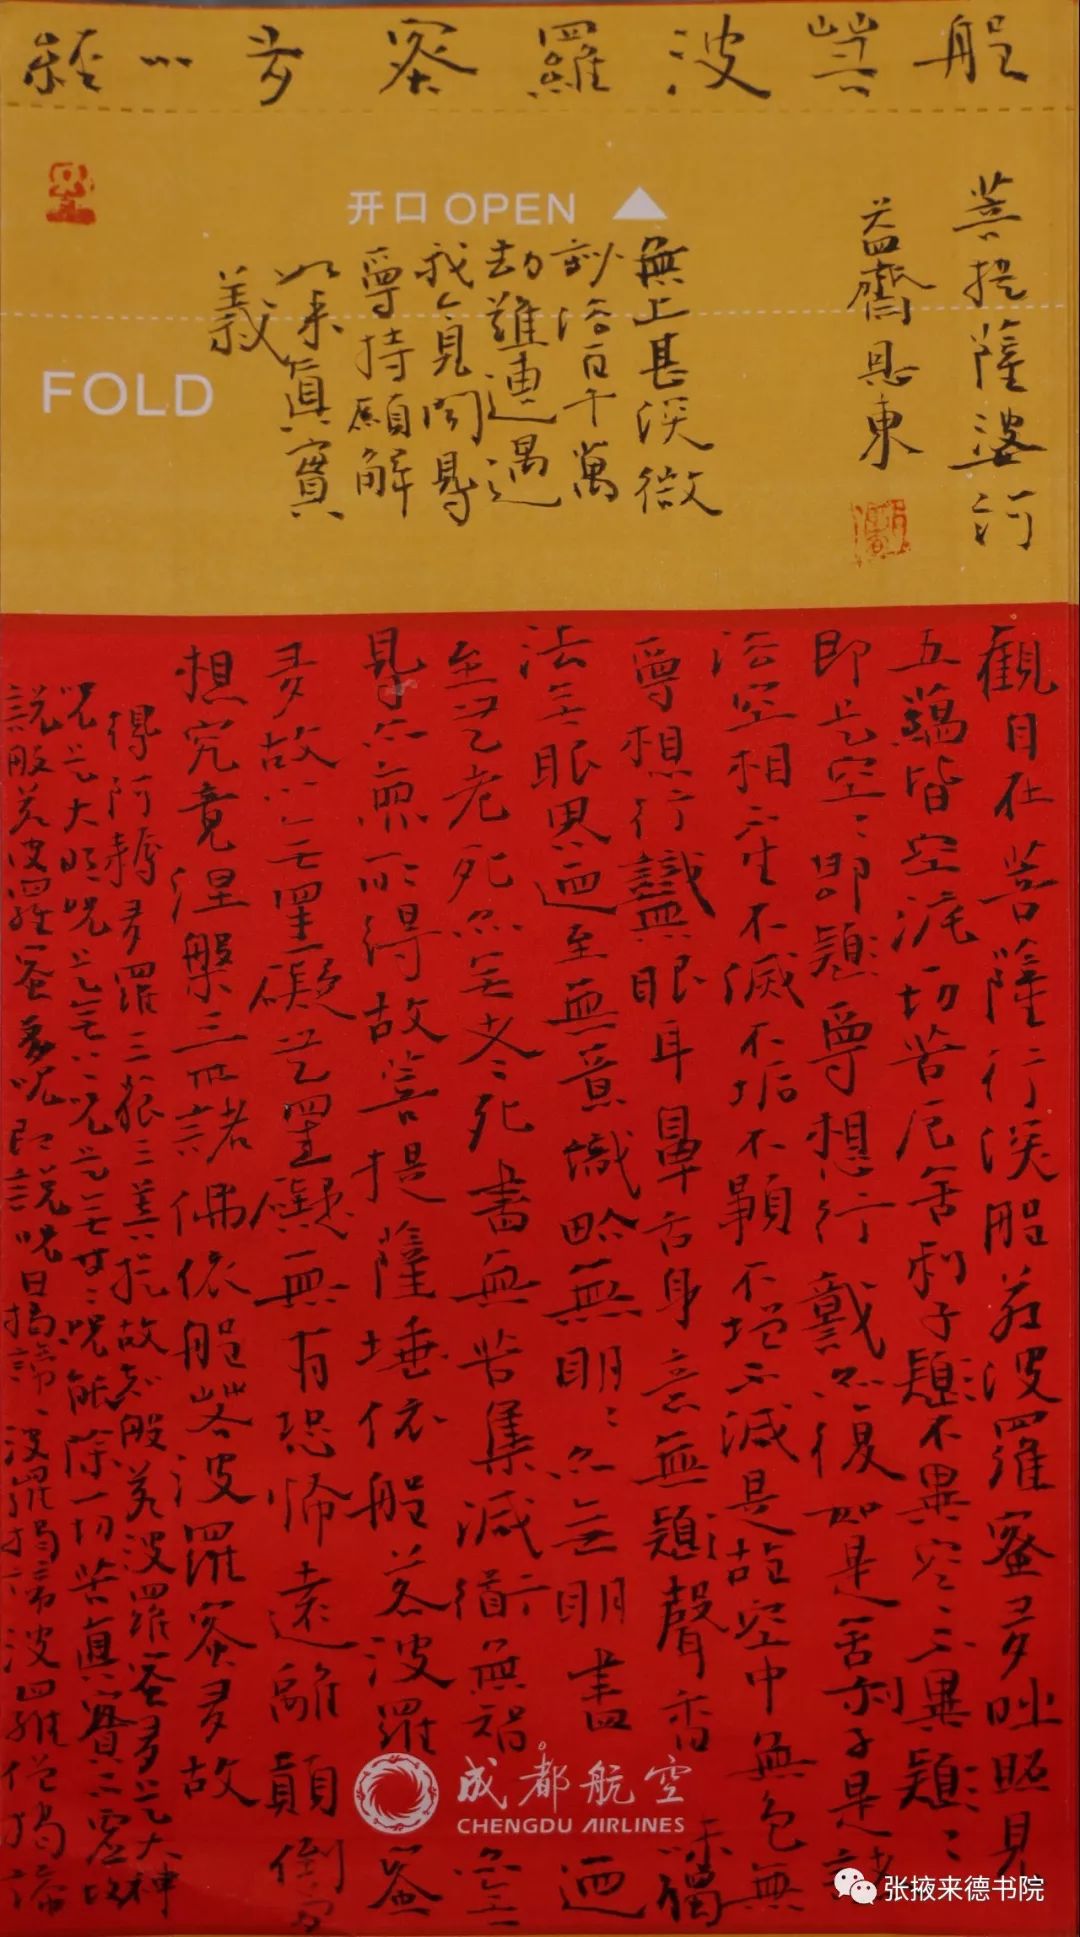 般若波羅蜜多心經
菩提薩婆訶
益齋 東
開口 OPEN
FOLD
無上甚深微
妙法百千萬
劫難遭遇
我今見聞得
受持願解
如来真實
義
觀自在菩薩行深般若波羅蜜多時照見
五蘊皆空度一切苦厄舍利子色不異空空不異色色
即是空空即是色受想行識亦復如是舍利子是諸
法空相不生不滅不垢不淨不增不減是故空中無色無
受想行識無眼耳鼻舌身意無色聲香味觸
法無眼界迺至無意識界無無明亦無無明盡迺
至無老死亦無老死盡無苦集滅道無智亦無
得亦無所得故菩提薩埵依般若波羅蜜
多故心無罣礙無罣礙故無有恐怖遠離顛倒夢
想究竟涅槃三世諸佛依般若波羅蜜多故
得阿耨多羅三藐三菩提故知般若波羅蜜多是大神
咒是大明咒是無上咒是無等等咒能除一切苦真實不虛故
說般若波羅蜜多咒即說咒曰揭諦揭諦波羅揭諦波羅僧揭諦
成都航空
CHENGDU AIRLINES
张掖来德书院